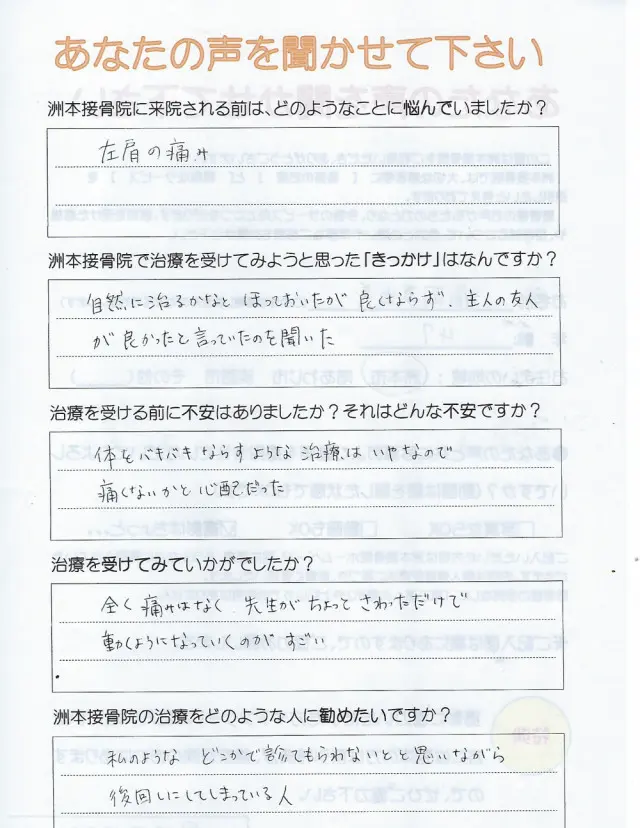 あなたの声を聞かせて下さい
洲本接骨院に来院される前は、どのようなことに悩んでいましたか？
左肩の痛み
洲本接骨院で治療を受けてみようと思った「きっかけ」はなんですか？
自然に治るかなと ほっておいたが 良くならず、主人の友人
が 良かったと言っていたのを聞いた
治療を受ける前に不安はありましたか？それはどんな不安ですか？
体をバキバキならすような 治療は いやなので
痛くないかと 心配だった
治療を受けてみていかがでしたか？
全く 痛みはなく 先生が ちょっと さわっただけで
動くようになっていくのが すごい
洲本接骨院の治療をどのような人に勧めたいですか？
私のような どこかで診てもらわないとと思いながら
後回しにしてしまっている人